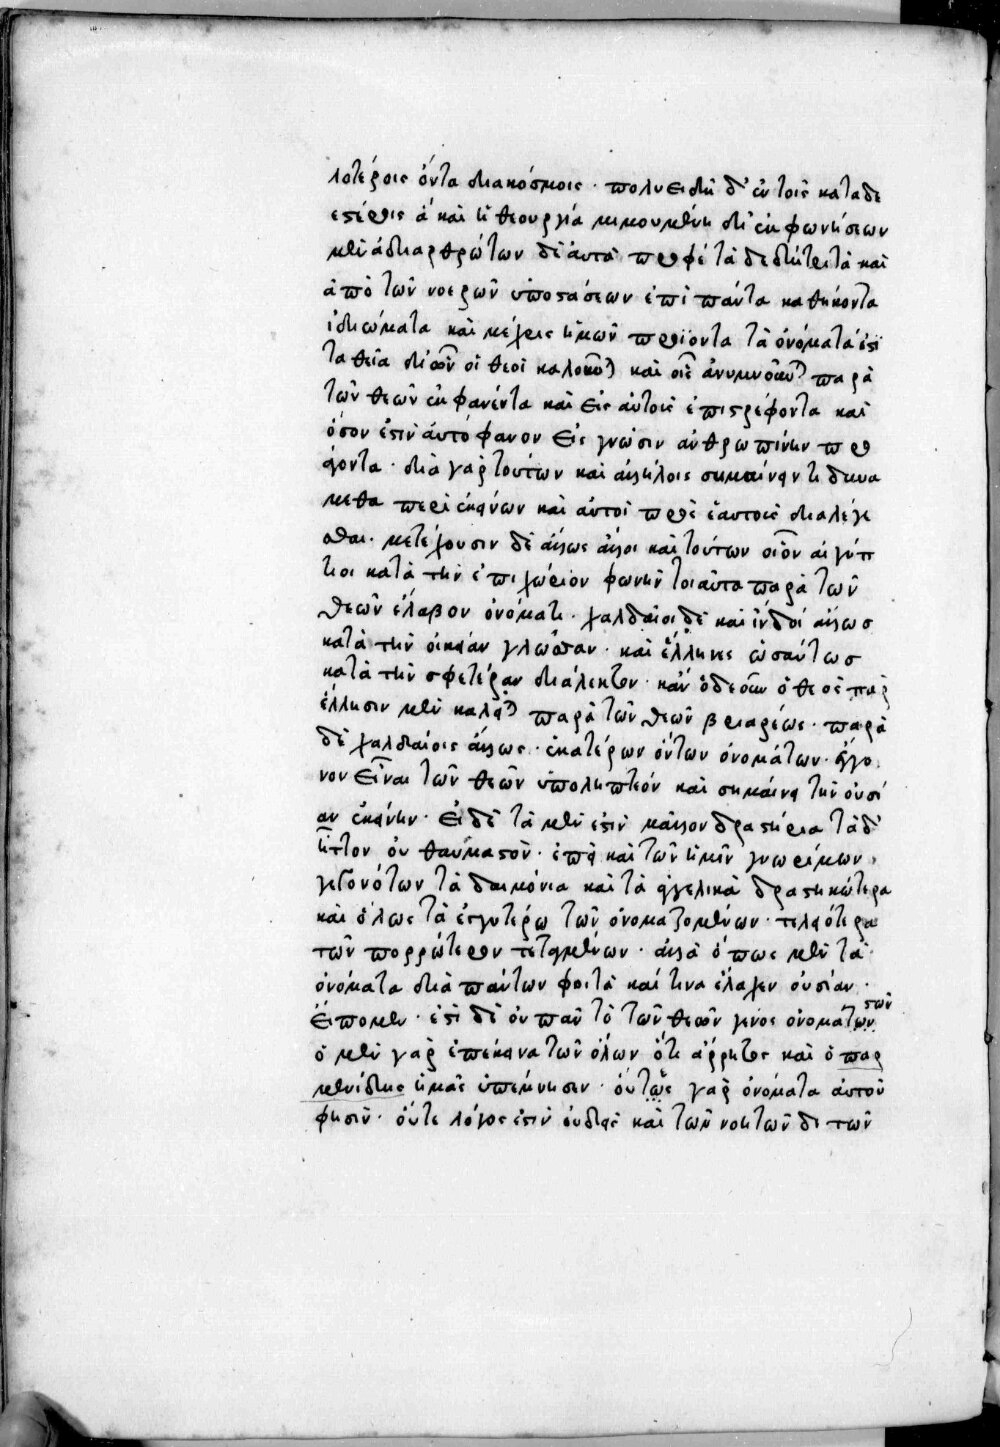 λοτέροις ὄντα διακόσμοις · πολυειδῆ δ' ἐν τοῖς καταδε
εστέροις ἃ καὶ ἡ θεουργία μιμουμένη δι' ἐκφωνήσεων
μὲν ἀδιαρθρώτων δὲ αὐτὰ προφέ τὰ δὲ δὴ τρίτα καὶ
ἀπὸ τῶν νοερῶν ὑποστάσεων ἐπὶ πάντα καθήκοντα
ἰδιώματα καὶ μέχρις ἡμῶν προϊόντα τὰ ὀνόματά ἐστι
τὰ θεῖα δι' ὧν οἱ θεοὶ καλοῦνται καὶ οἷς ἀνυμνοῦνται παρὰ
τῶν θεῶν ἐκφανέντα καὶ εἰς αὐτοὺς ἐπιστρέφοντα καὶ
ὅσον ἐστὶν αὐτόφανον εἰς γνῶσιν ἀνθρωπίνην προ
άγοντα · διὰ γὰρ τούτων καὶ ἀλλήλοις σημαίνειν τι δυνά
μεθα περὶ ἐκείνων καὶ αὐτοὶ πρὸς ἑαυτοὺς διαλέγε
σθαι · μετέχουσιν δὲ ἄλλως ἄλλοι καὶ τούτων οἷον αἰγύπ
τιοι κατὰ τὴν ἐπιχώριον φωνὴν τοιαῦτα παρὰ τῶν
θεῶν ἔλαβον ὀνόματα · χαλδαῖοι δὲ καὶ ἰνδοὶ ἄλλως
κατὰ τὴν οἰκείαν γλῶσσαν · καὶ ἕλληνες ὡσαύτως
κατὰ τὴν σφετέραν διάλεκτον · κἂν ὅδε οὖν ὁ θεὸς παρ
ἕλλησιν μὲν καλεῖται παρὰ τῶν θεῶν βριαρέως · παρὰ
δὲ χαλδαίοις ἄλλως · ἑκατέρων ὄντων ὀνομάτων · ἔγγο
νον εἶναι τῶν θεῶν ὑποληπτέον καὶ σημαίνει τὴν οὐσί
αν ἐκείνην · εἰ δὲ τὰ μέν ἐστι μᾶλλον δραστήρια τὰ δ'
ἧττον οὐ θαυμαστὸν · ἐπεὶ καὶ τῶν ἡμῖν γνωρίμων
γεγονότων τὰ δαιμόνια καὶ τὰ ἀγγελικὰ δραστικώτερα
καὶ ὅλως τὰ ἐγγυτέρω τῶν ὀνομαζομένων · τελειότερα
τῶν πορρώτερον τεταγμένων · ἀλλὰ ὅπως μὲν τὰ
ὀνόματα διὰ πάντων φοιτᾷ καὶ τίνα ἔλαχεν οὐσίαν ·
εἴπομεν · ἔστι δὲ οὐ πᾶν τὸ τῶν θεῶν γένος ὀνομάτων στὸν
ὁ μὲν γὰρ ἐπέκεινα τῶν ὅλων ὅτι ἄρρητος καὶ ὁ παρ
μενίδης ἡμᾶς ὑπέμνησιν · οὔτως γὰρ ὀνόματα αὐτοῦ
φησὶν · οὔτε λόγος ἐστὶν οὐδεὶς καὶ τῶν νοητῶν δὲ τῶν